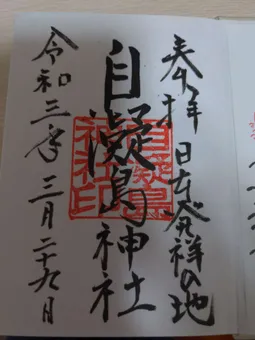 奉拝 日本発祥の地
自凝島神社
自凝島神社印
令和三年 三月二十九日